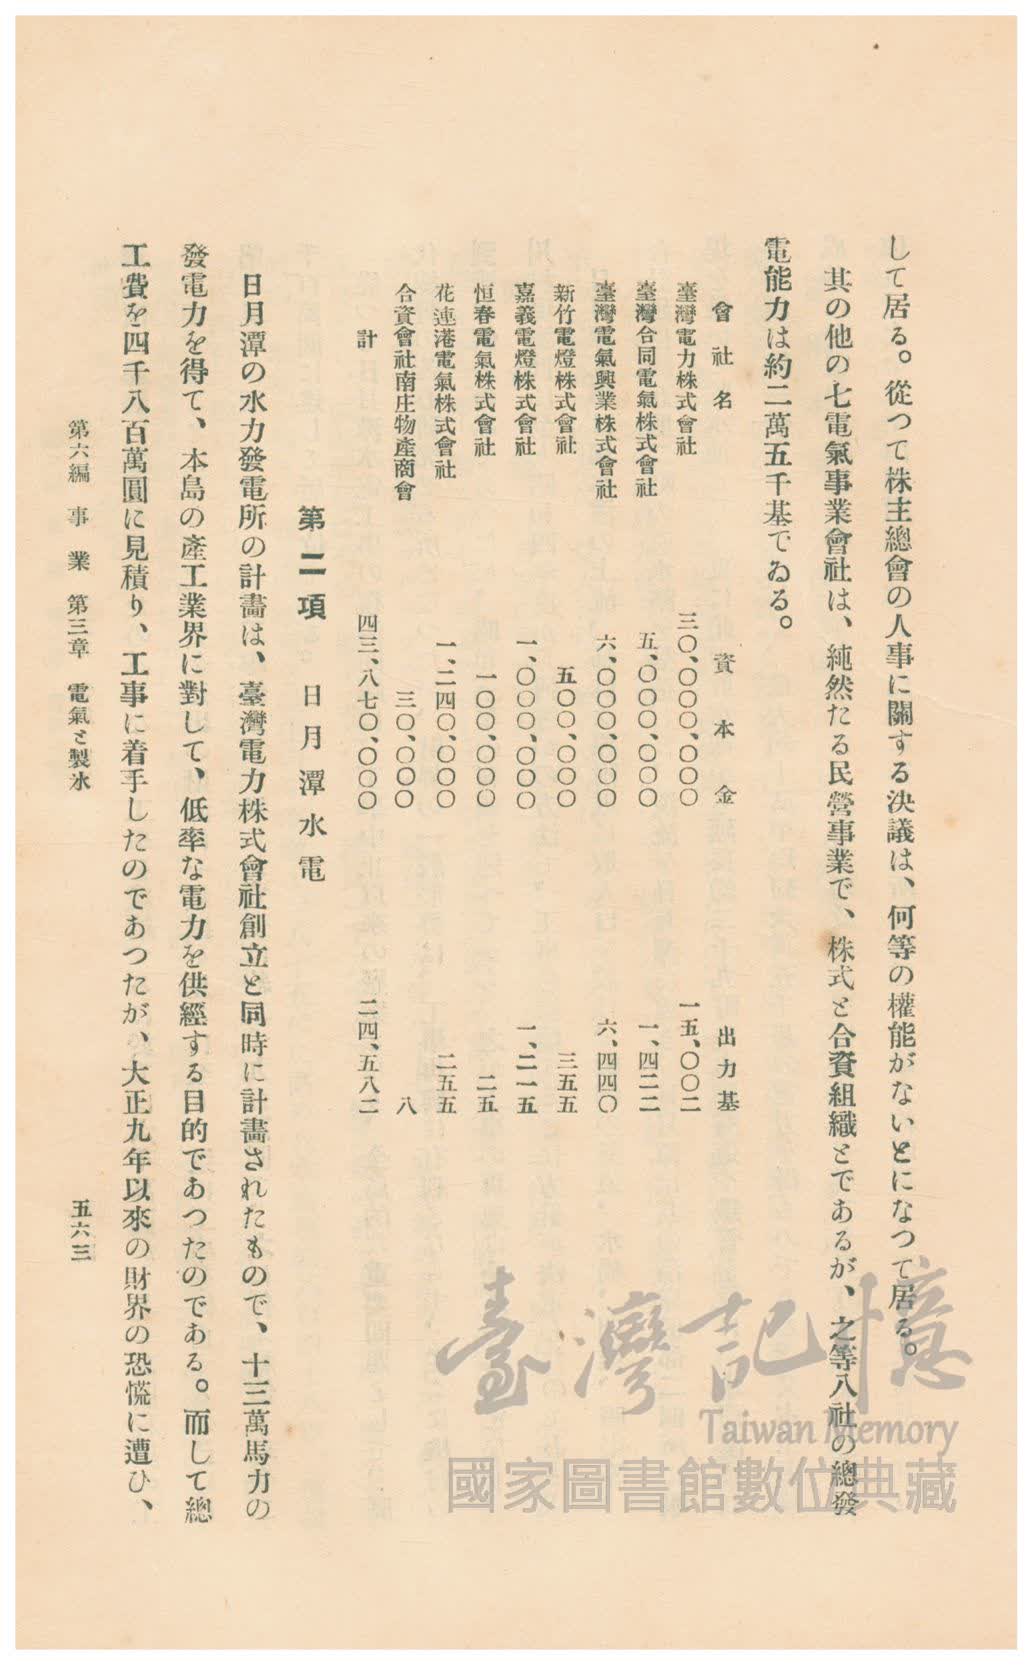 して居る。從つて株主總會の人事に關する決議は、何等の權能がないとになつて居る。
其の他の七電氣事業會社は、純然たる民營事業で、株式と合資組織とであるが、之等八社の總發
電能力は約二萬五千基でゐる。
會社名 資本金 出力基
臺灣電力株式會社 三〇、〇〇〇、〇〇〇 一五、〇〇二
臺灣合同電氣株式會社 五、〇〇〇、〇〇〇 一、四二二
臺灣電氣興業株式會社 六、〇〇〇、〇〇〇 六、四四〇
新竹電燈株式會社 五〇〇、〇〇〇 三五五
嘉義電燈株式會社 一、〇〇〇、〇〇〇 一、二一五
恒春電氣株式會社 一〇〇、〇〇〇 二五
花連港電氣株式會社 一、二四〇、〇〇〇 二五五
合資會社南庄物產商會 三〇、〇〇〇 八
計 四三、八七〇、〇〇〇 二四、五八二
第二項 日月潭水電
日月潭の水力發電所の計畵は、臺灣電力株式會社創立と同時に計畵されたもので、十三萬馬力の
發電力を得て、本島の產工業界に對して、低率な電力を供經する目的であつたのである。而して總
工費を四千八百萬圓に見積り、工事に着手したのであつたが、大正九年以來の財界の恐慌に遭ひ、
第六編 事業 第三章 電氣と製氷
五六三
臺灣記憶
Taiwan Memory
國家圖書館數位典藏